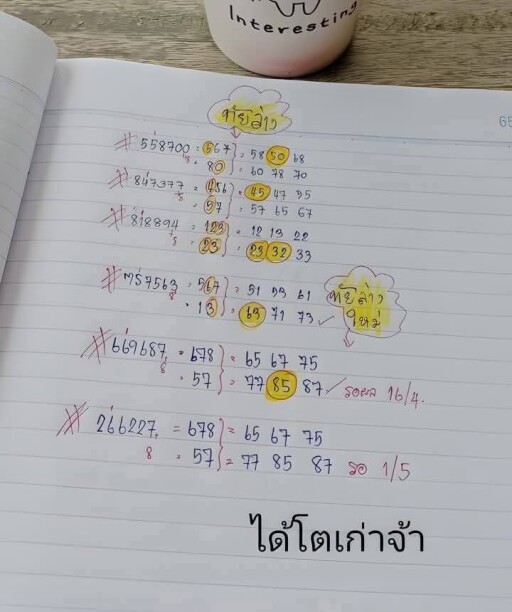 Interesting
65
ทับล่าง
558700 = 567 } = 58 50 68
8 = 80 } = 60 78 70
847377 = 456 } = 45 47 55
8 = 57 } = 57 65 67
818894 = 123 } = 12 13 22
8 = 23 } = 23 32 33
357563 = 567 } = 51 53 61
8 = 13 } = 63 71 73 ✓
ใหม่
669687 = 678 } = 65 67 75
8 = 57 } = 77 85 87 ✓ รอผล 16/4.
266227 = 678 } = 65 67 75
8 = 57 } = 77 85 87 รอ 1/5
ได้โตเก่าจ้า